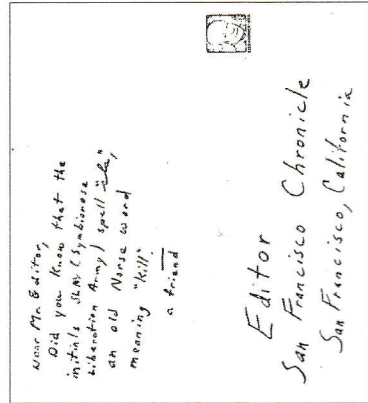 Dear Mr. Editor,
Did you know that the
initials SLAY (Symbionese
Liberation Army) spell "sla,"
an old Norse word
meaning "kill".
a friend
Editor
San Francisco Chronicle
San Francisco, California